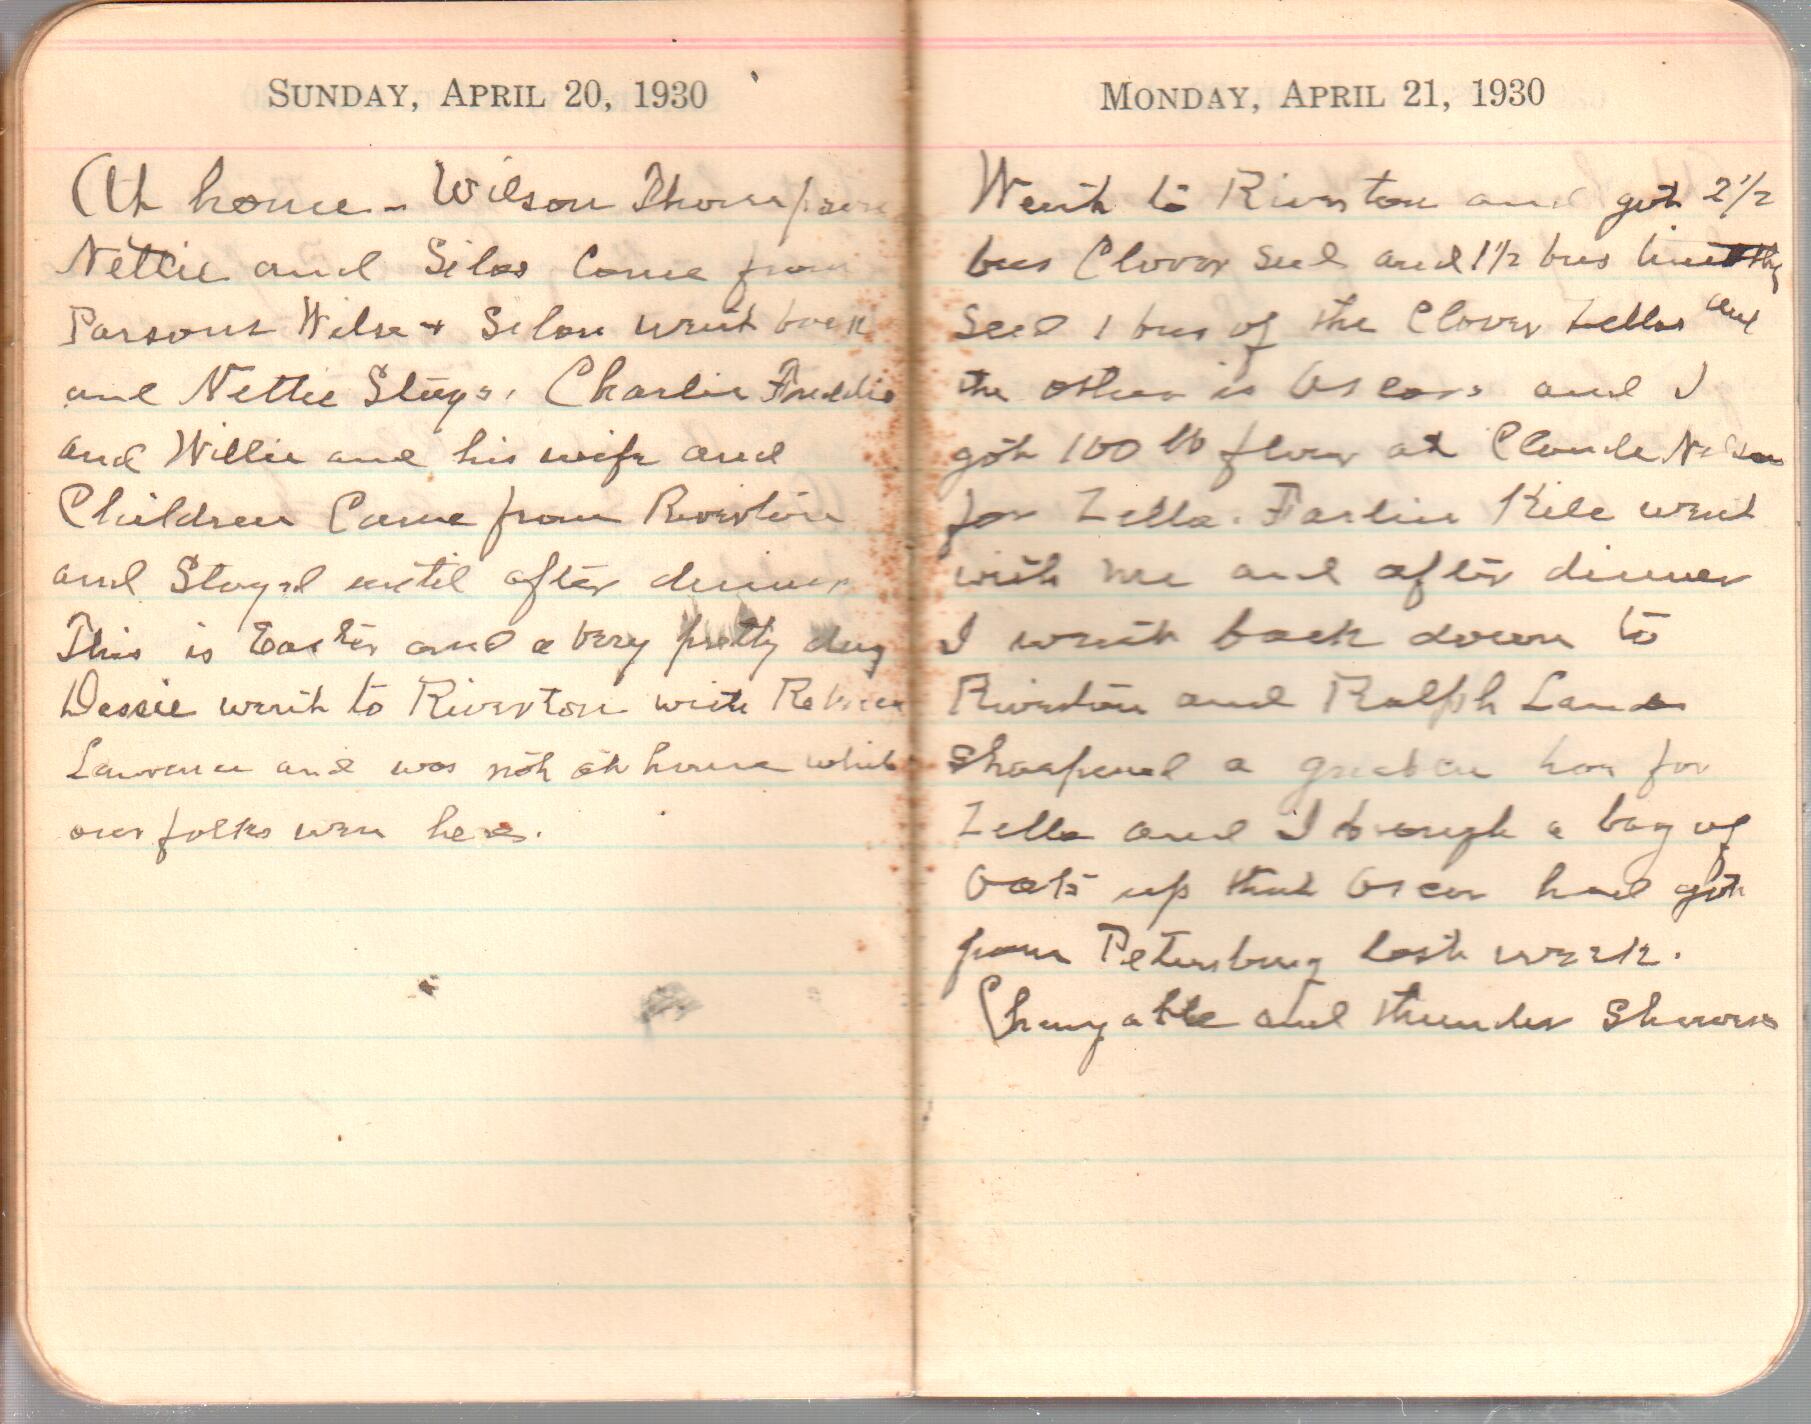 SUNDAY, APRIL 20, 1930
At home - Wilson Thompson
Nettie and Silas Came from
Parsons Wilse + Silas went back
and Nettie Stays. Charlie Freddie
and Willie and his wife and
Children Came from Riverton
and Stayed until after dinner
This is Easter and a very pretty day
Dessie went to Riverton with
Lawrence and was not at home while
our folks were here.
MONDAY, APRIL 21, 1930
Went to Riverton and got 2 1/2
bus Clover seed and 1 1/2 bus timothy
seed 1 bus of the Clover Zellas and
the other is Oscars and I
got 100 lb flour at Claude Nelson
for Zella. Kile went
with me and after dinner
I went back down to
Riverton and Ralph
sharpened a hoe for
Zella and I brough a bag of
Oats up that Oscar had got
from Petersburg last week.
Changable and thunder showers